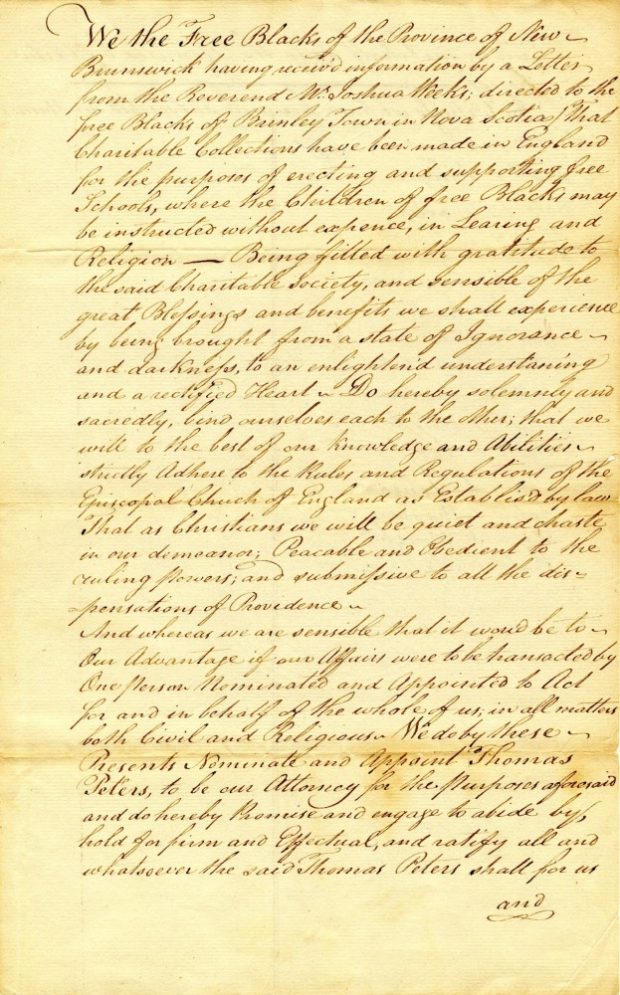 We the Free Blacks of the Province of New
Brunswick having receiv'd information by a Letter
from the Reverend Mr. Joshua Weeks; directed to the
free Blacks of Brinley Town in Nova Scotia, That
Charitable Collections have been made in England
for the purposes of erecting and supporting free
Schools, where the Children of free Blacks may
be instructed without expence, in Learing and
Religion — Being filled with gratitude to
the said Charitable Society, and sensible of the
great Blessings and benefits we shall experience
by being brought from a state of Ignorance
and darkness, to an enlightin'd understaning
and a rectified Heart Do hereby solemnly and
sacredly, bind ourselves each to the other; that we
will to the best of our Knowledge and Abilities
strictly Adhere to the Rules and Regulations of the
Episcopal Church of England as Establis'd by law
That as Christians we will be quiet and chaste
in our demeanor; Peacable and Obedient to the
ruling powers; and submissive to all the dis=
=pensations of Providence
And whereas we are sensible that it wou'd be to
Our Advantage if our Affairs were to be transacted by
One person Nominated and Appointed to Act
for and in behalf of the whole of us, in all matters
both Civil and Religious We do by these
Presents Nominate and Appoint Thomas
Peters, to be our Attorney for the purposes aforesaid
and do hereby Promise and engage to abide by,
hold for firm and Effectual, and ratify all and
whatsoever the said Thomas Peters shall for us
and